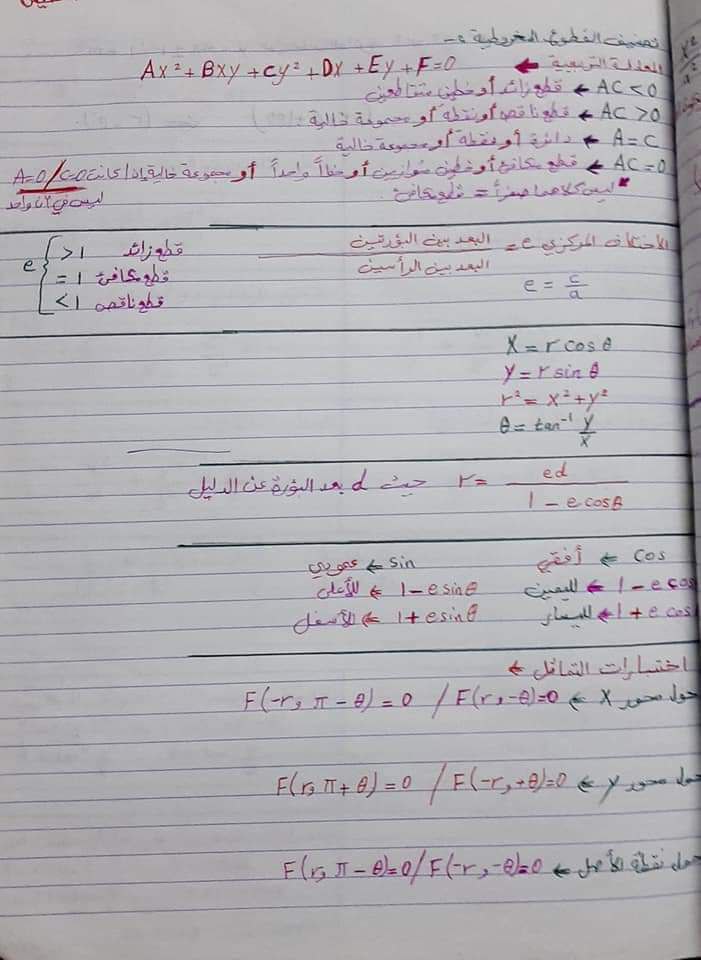 تصنيف القطوع المخروطية :-
المعادلة التربيعية ← Ax² + Bxy + Cy² + Dx + Ey + F = 0
AC < 0 ← قطع زائد أو خطين متقاطعين
AC > 0 ← قطع ناقص أو نقطة أو مجموعة خالية
A = C ← دائرة أو نقطة أو مجموعة خالية
AC = 0 ← قطع مكافئ أو خطين متوازيين أو خطاً واحداً أو مجموعة خالية إذا كانت A=0 / C=0
* ليس كلاهما صفراً = قطع مكافئ. ليس في آن واحد
الاختلاف المركزي e = البعد بين البؤرتين / البعد بين الرأسين
e = c/a
e { >1 قطع زائد
=1 قطع مكافئ
<1 قطع ناقص
X = r cos θ
y = r sin θ
r² = x² + y²
θ = tan⁻¹ y/x
r = ed / 1 - e cos θ حيث d بعد البؤرة عن الدليل
cos ← أفقي sin ← عمودي
1 - e cos ← لليمين 1 - e sin θ ← للأعلى
1 + e cos ← لليسار 1 + e sin θ ← للأسفل
اختبارات التماثل ←
حول محور X ← F(r, -θ) = 0 / F(-r, π - θ) = 0
حول محور y ← F(-r, +θ) = 0 / F(r, π + θ) = 0
حول نقطة الأصل ← F(-r, -θ) = 0 / F(r, π - θ) = 0